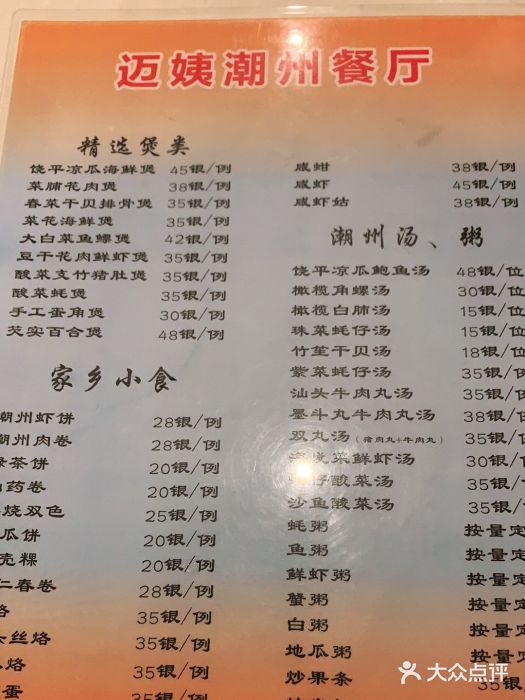 迈姨潮州餐厅
精选煲类
饶平凉瓜海鲜煲 45银/例
菜脯花肉煲 38银/例
春菜干贝排骨煲 35银/例
菜花海鲜煲 35银/例
大白菜鱼鳔煲 42银/例
豆干花肉鲜虾煲 35银/例
酸菜支竹猪肚煲 35银/例
酸菜蚝煲 35银/例
手工蛋角煲 30银/例
芡实百合煲 48银/例
家乡小食
潮州虾饼 28银/例
潮州肉卷 28银/例
绿茶饼 20银/例
药卷 20银/例
烧双色 25银/例
瓜饼 20银/例
壳粿 20银/例
仁春卷 28银/例
烙 35银/例
丝烙 35银/例
烙 35银/例
蛋 35银/例
咸蚶 38银/例
咸虾 45银/例
咸虾姑 38银/例
潮州汤、粥
饶平凉瓜鲍鱼汤 48银/位
橄榄角螺汤 30银/位
橄榄白肺汤 15银/位
珠菜蚝仔汤 15银/位
竹笙干贝汤 18银/位
紫菜蚝仔汤 35银/
汕头牛肉丸汤 35银/
墨斗丸牛肉丸汤 38银/
双丸汤（猪肉丸+牛肉丸） 35银/
菜鲜虾汤 30银/
仔酸菜汤 35银/
沙鱼酸菜汤 35银/
蚝粥 按量定
鱼粥 按量定
鲜虾粥 按量定
蟹粥 按量定
白粥 按量定
地瓜粥 按量定
炒果条
大众点评